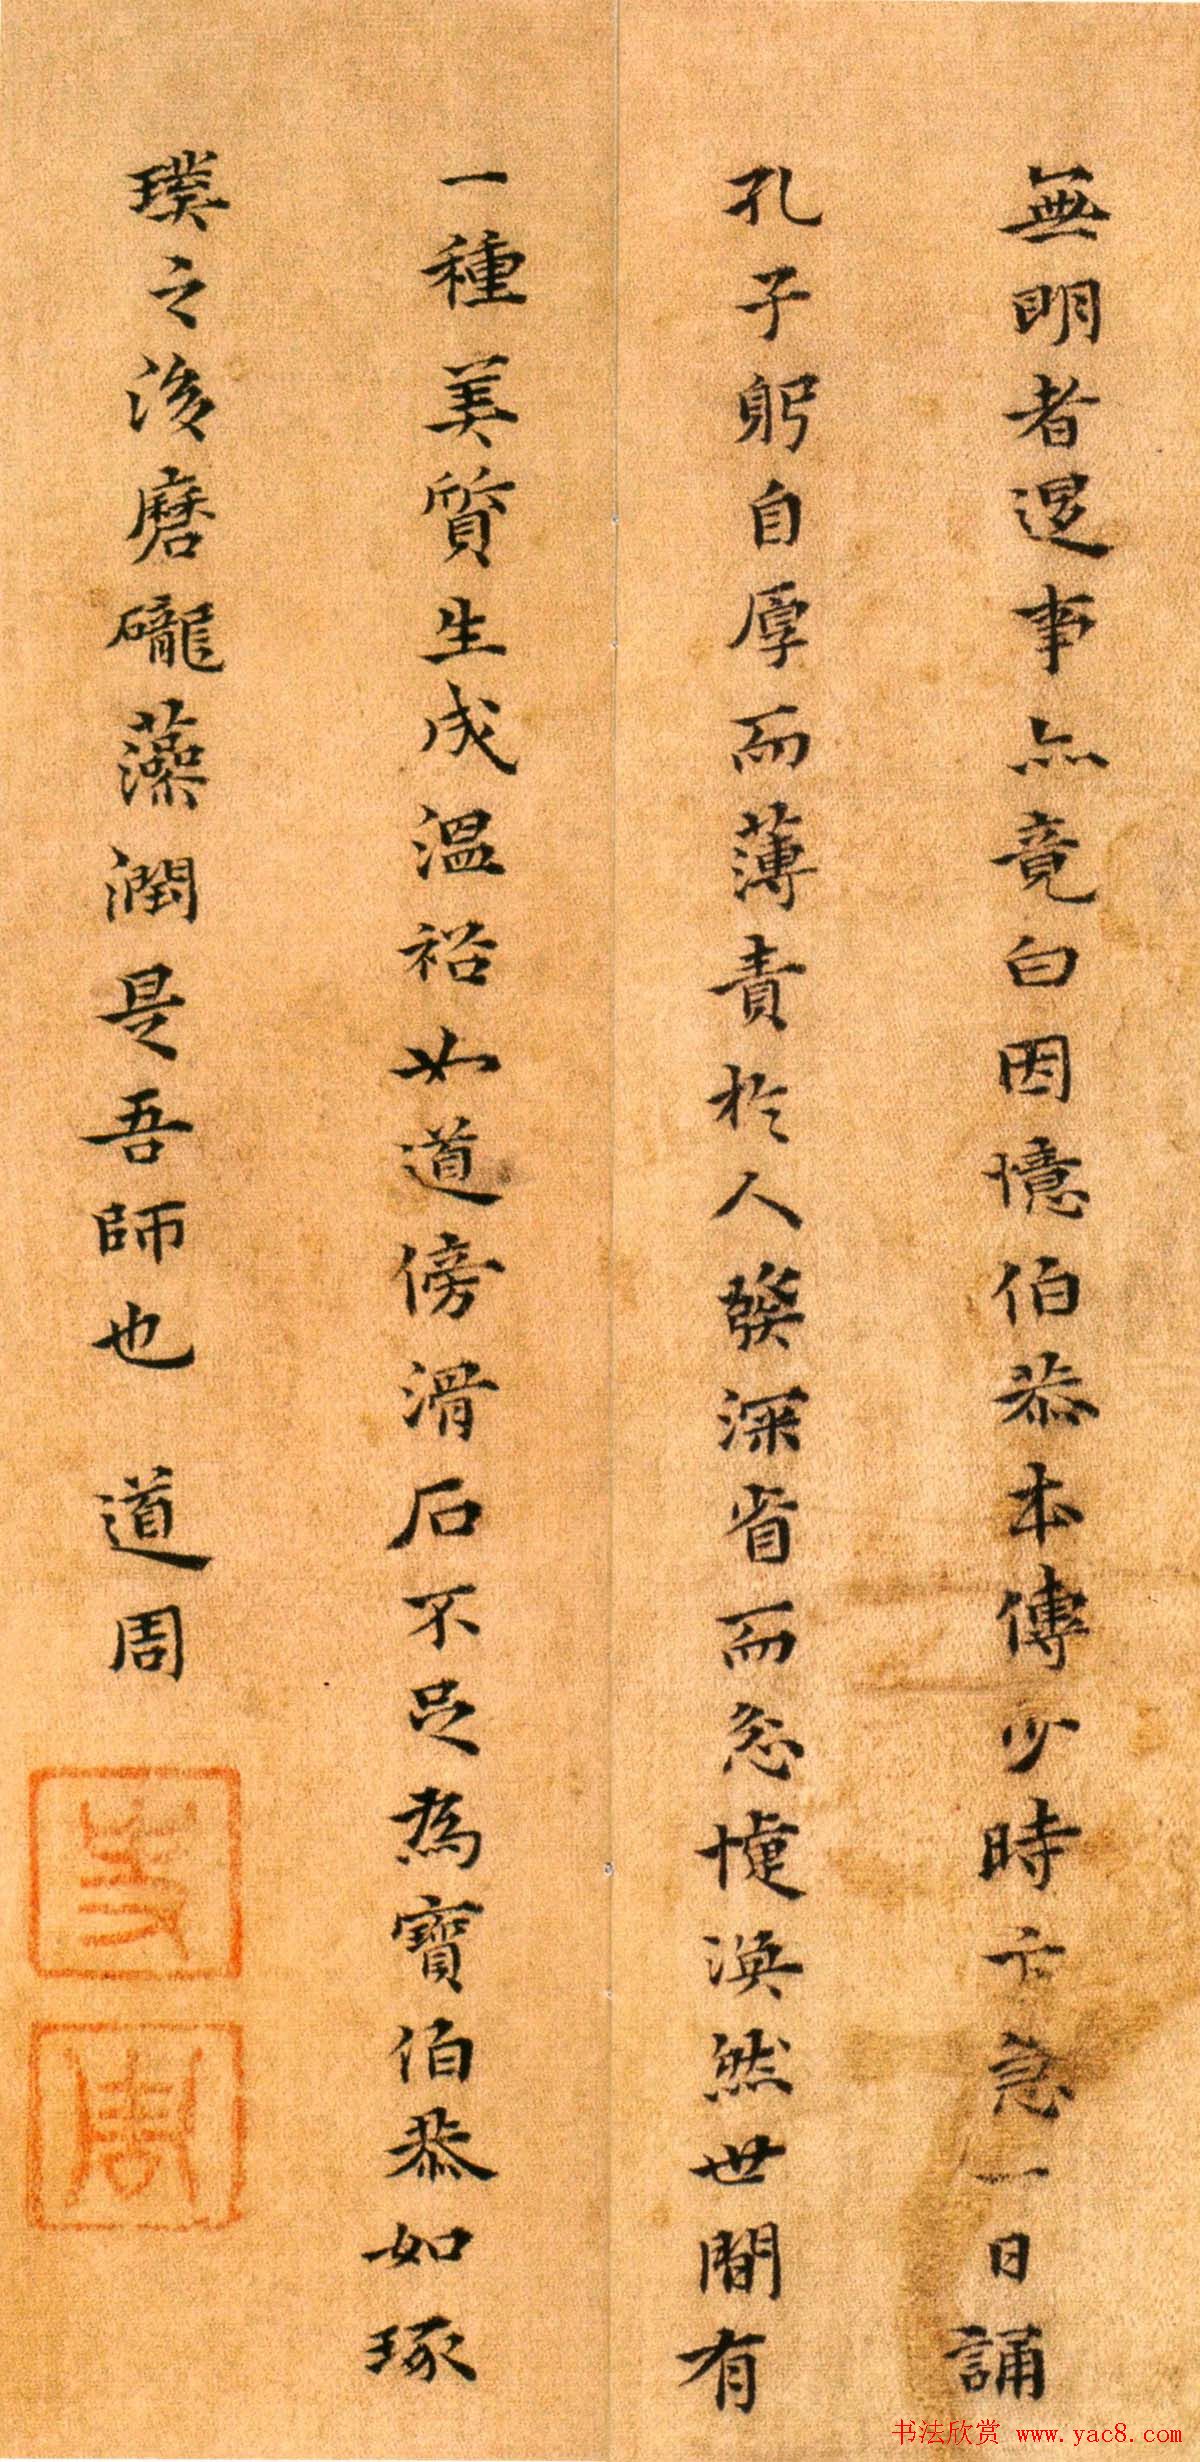 無明者遇事亦竟白因憶伯恭本傳少時卞急一日誦
孔子躬自厚而薄責於人發深省而忿懥渙然世間有
一種美質生成溫裕如道傍滑石不足為寶伯恭如琢
璞之後磨礲藻潤是吾師也 道周
周
书法欣赏 www.yac8.com